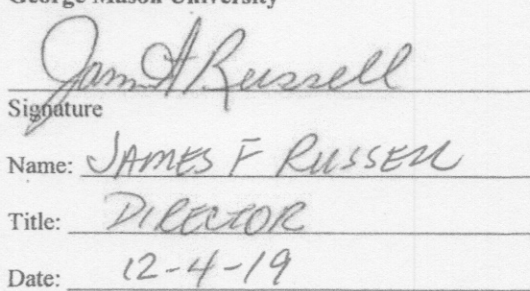 George Mason University
James F Russell
Signature
Name: JAMES F RUSSELL
Title: DIRECTOR
Date: 12-4-19